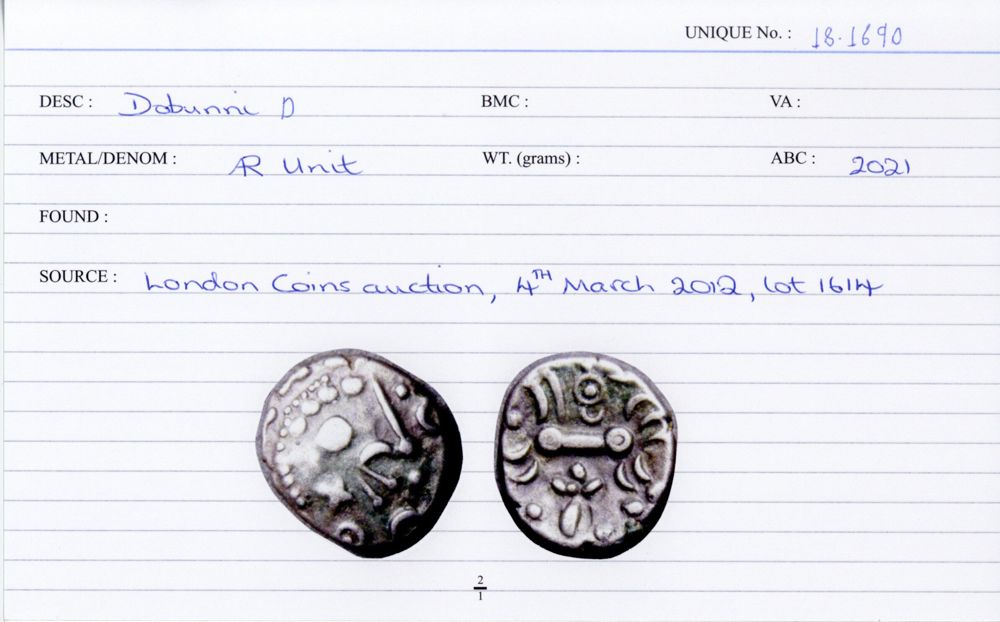 UNIQUE No. : 18.1690
DESC : Dobunnic D BMC : VA :
METAL/DENOM : AR Unit WT. (grams) : ABC : 2021
FOUND :
SOURCE : London Coins auction, 4TH March 2012, lot 1614
2
1